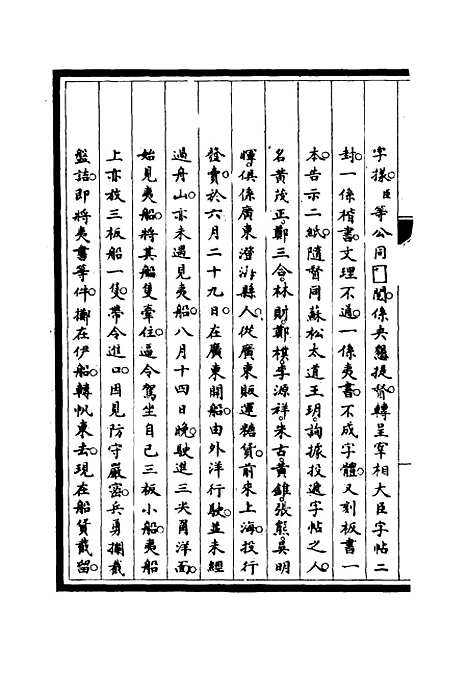 字樣。臣等公同□閱。係央懇提督轉呈宰相大臣字帖二
封。一係楷書。文理不通。一係夷書。不成字體。又刻板書一
本。告示二紙。隨督同蘇松太道王玥。詢據投遞字帖之人。
名黃茂正。鄭三合。林財。鄭棋。李源祥。朱古。黃錐。張熊。吳明
輝。俱係廣東澄海縣人。從廣東販運糖貨。前來上海投行
發賣。於六月二十九日。在廣東開船。由外洋行駛。並未經
過舟山。亦未遇見夷船。八月十四日晚。駛進三尖角洋面。
始見夷船。將其船隻牽住。逼令駕坐自己三板小船。夷船
上亦放三板船一隻。帶令進口。因見防守嚴密。兵勇攔截
盤詰。即將夷書等件。擲在伊船。轉帆東去。現在船貨截留。